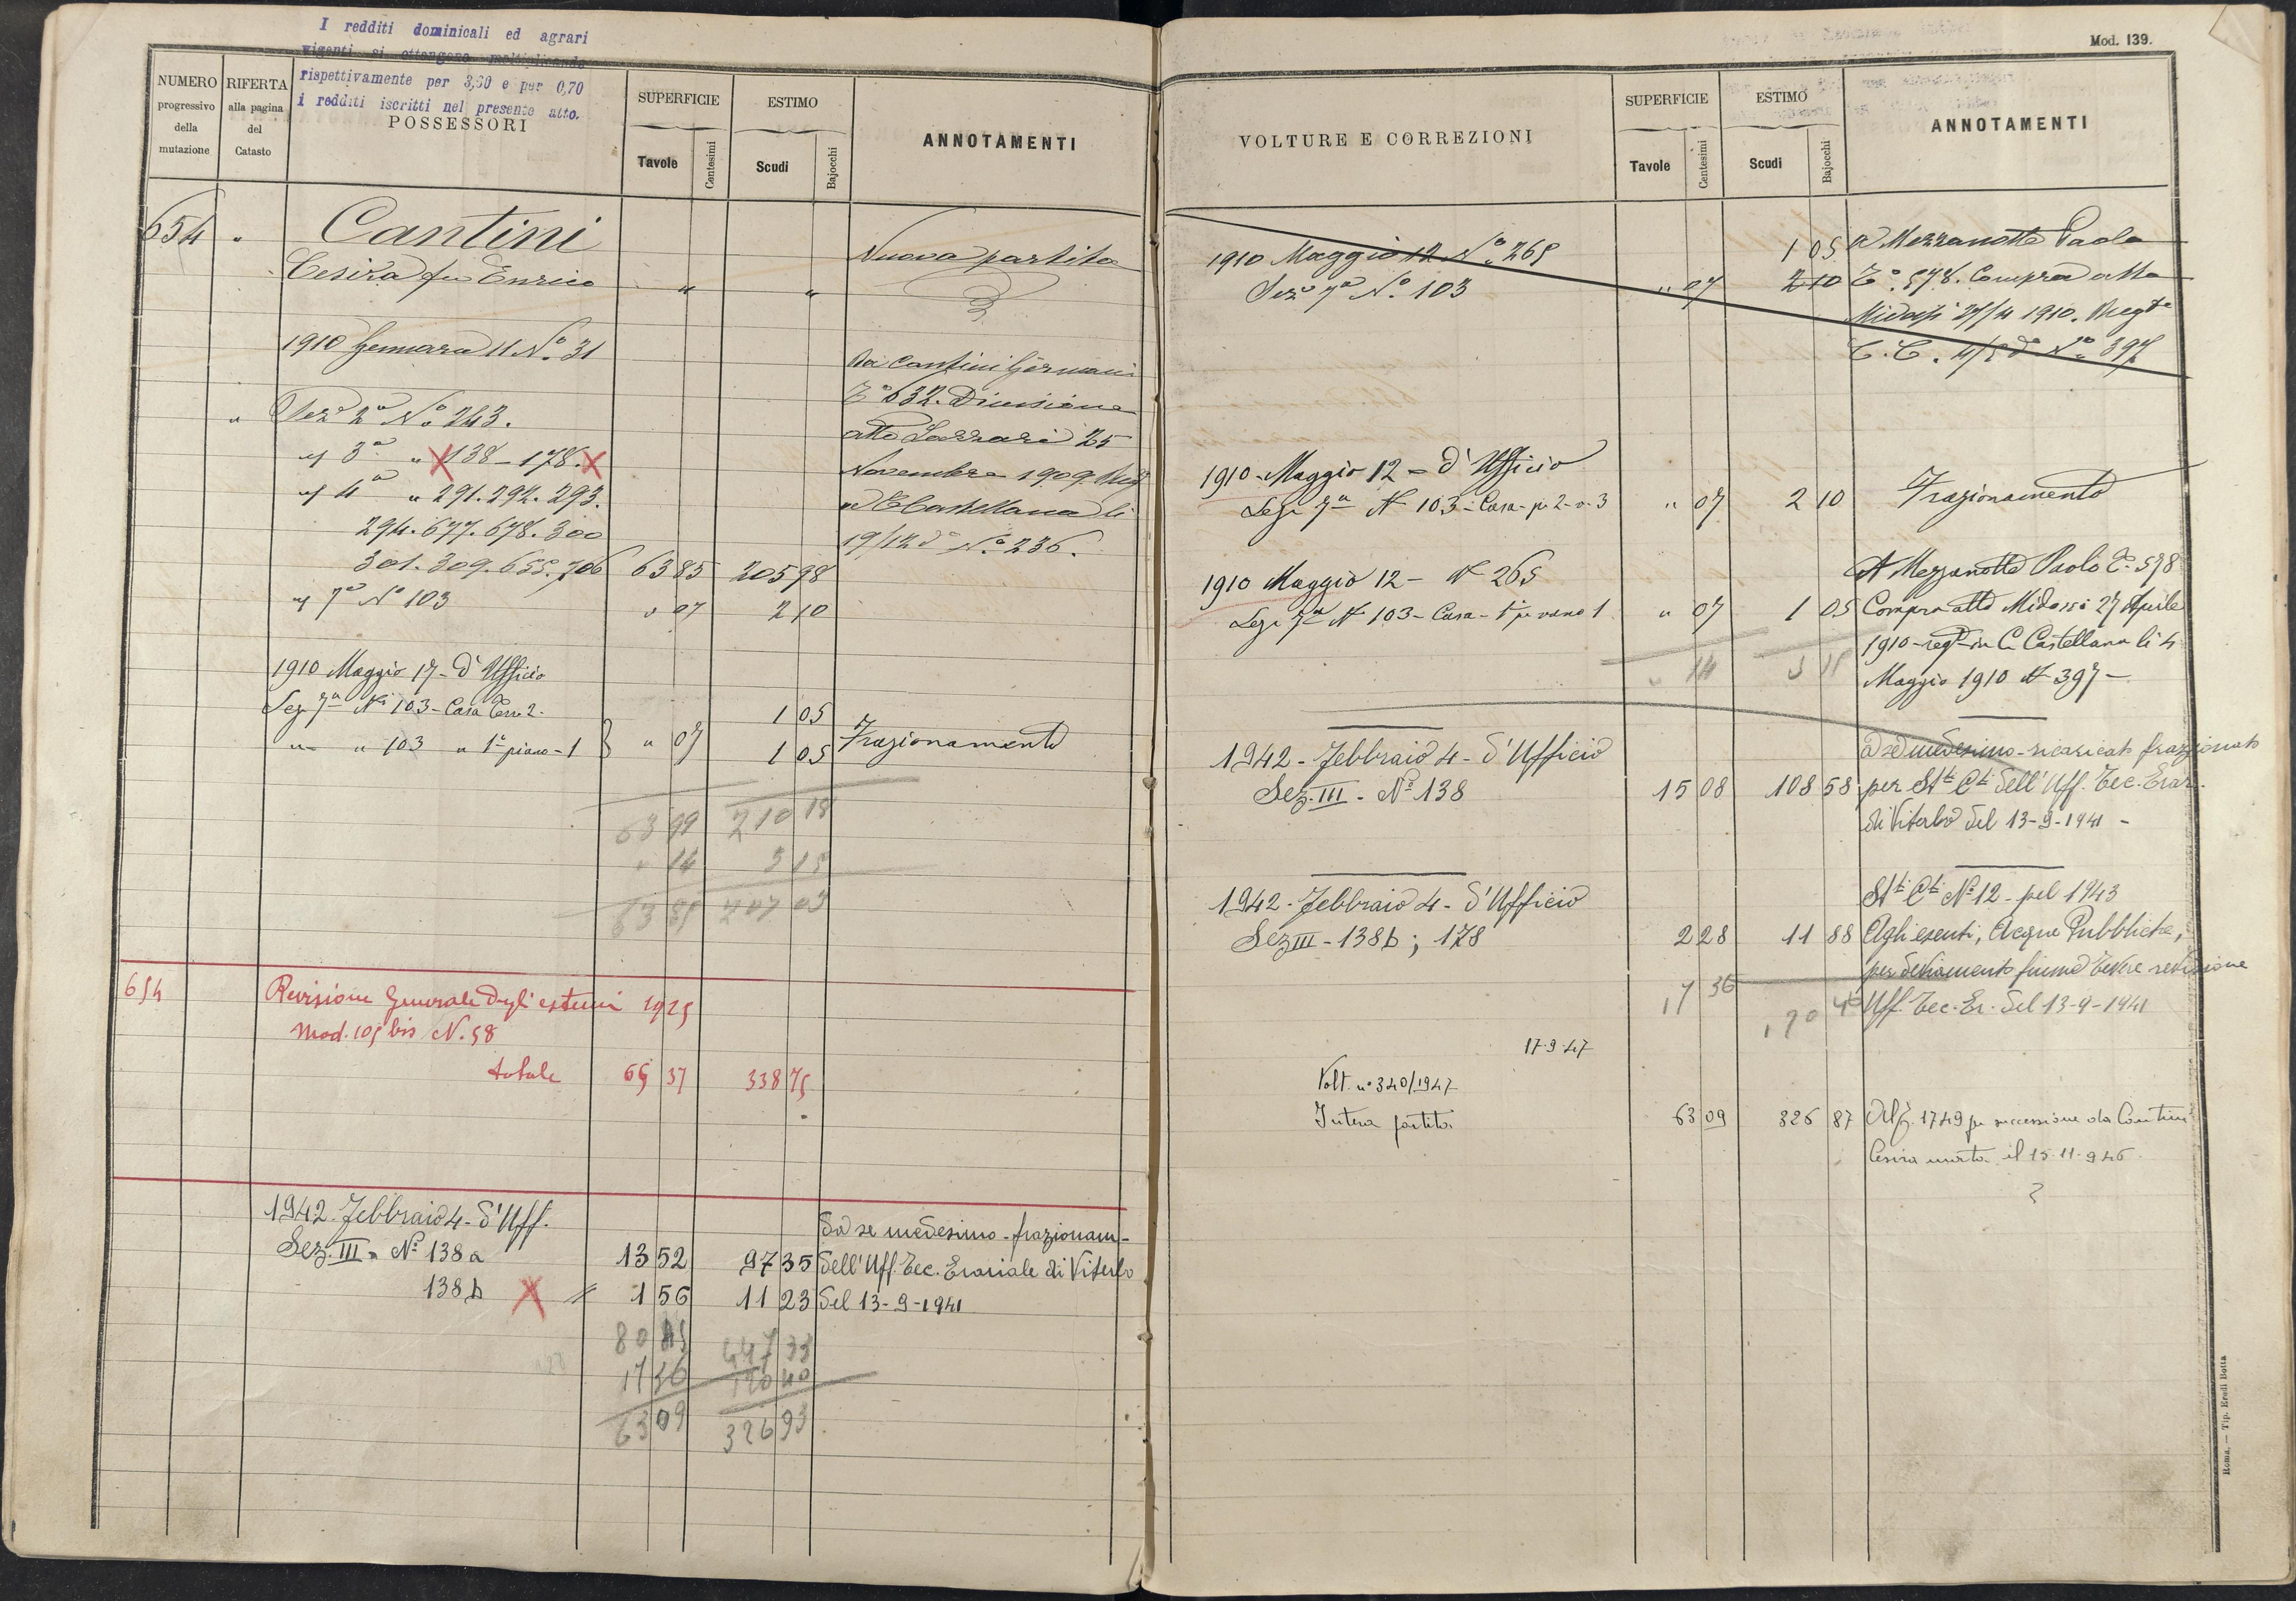 I redditi dominicali ed agrari
vigenti si ottengono moltiplicando
rispettivamente per 3,60 e per 0,70
i redditi iscritti nel presente atto.
NUMERO progressivo della mutazione
RIFERTA alla pagina del Catasto
POSSESSORI
SUPERFICIE
Tavole Centesimi
ESTIMO
Scudi Bajocchi
ANNOTAMENTI
654 " Cantini
Cesira fu Enrico " " Nuova partita
1910 Gennaro 11 No. 31
Da Cantini Germani
Ta 632. Divisione
" Seze 2a No 243.
atto Lazzari 25
" 3a " 138 - 178.
Novembre 1909
" 4a " 291. 292. 293.
Castellana li
294. 677. 678. 300
19/12 do No. 236.
301. 309. 655. 706 63 85 205 98
" 7a No 103 " 07 2 10
1910 Maggio 17 - d'Ufficio
Sez 7a No 103 - Casa Terr. 2 - 1 05
" - " 103 " 1o piano - 1 " 07 1 05 Frazionamento
63 99 210 18
" 14 3 15
63 85 207 03
654 Revisione Generale degli estimi 1925
Mod. 105 bis N. 58
totale 65 37 338 75
1942. Febbraio 4 - d'Uff.
Da se medesimo - frazionam-
Sez. III - No 138 a 13 52 97 35 dell'Uff. Tec. Erariale di Viterbo
138 b 1 56 11 23 del 13-9-1941
80 45 447 33
17 36 120 40
63 09 326 93
Mod. 139.
VOLTURE E CORREZIONI
SUPERFICIE
Tavole Centesimi
ESTIMO
Scudi Bajocchi
ANNOTAMENTI
1910 Maggio 12 No. 265 1 05 A Mezzanotte Paolo
Seze 7a No. 103 " 07 2 10 Ta. 578. Compra atto
Midossi 27/4 1910. Regto
C. C. 4/5 do No 397
1910 - Maggio 12 - d'Ufficio
Sez 7a No 103 - Casa - p. 2 - v. 3 " 07 2 10 Frazionamento
1910 Maggio 12 - No 265
A Mezzanotte Paolo Ta 578
Sez 7a No 103 - Casa - 1o p. vano 1 " 07 1 05 Compra atto Midossi 27 Aprile
" 14 3 15
1910 - regto in C. Castellana li 4
Maggio 1910 No 397 -
1942 - Febbraio 4 - d'Ufficio
a se medesimo - ricaricato frazionato
Sez. III - No 138 15 08 108 58 per St.ti C.ti dell'Uff. Tec. Erar.
di Viterbo del 13-9-1941 -
St.ti C.ti No 12 - pel 1943
1942 - Febbraio 4 - d'Ufficio
Sez III - 138 b ; 178 2 28 11 88 Agli esenti, Acque Pubbliche,
per deviamento fiume Tevere revisione
17 36 120 46 Uff. Tec. Er. del 13-9-1941
17.9.47
Volt. no 340/1947
Intera partita 63 09 326 87 1749 per successione da Cantini
Cesira morta il 15.11.946
Roma. — Tip. Eredi Botta